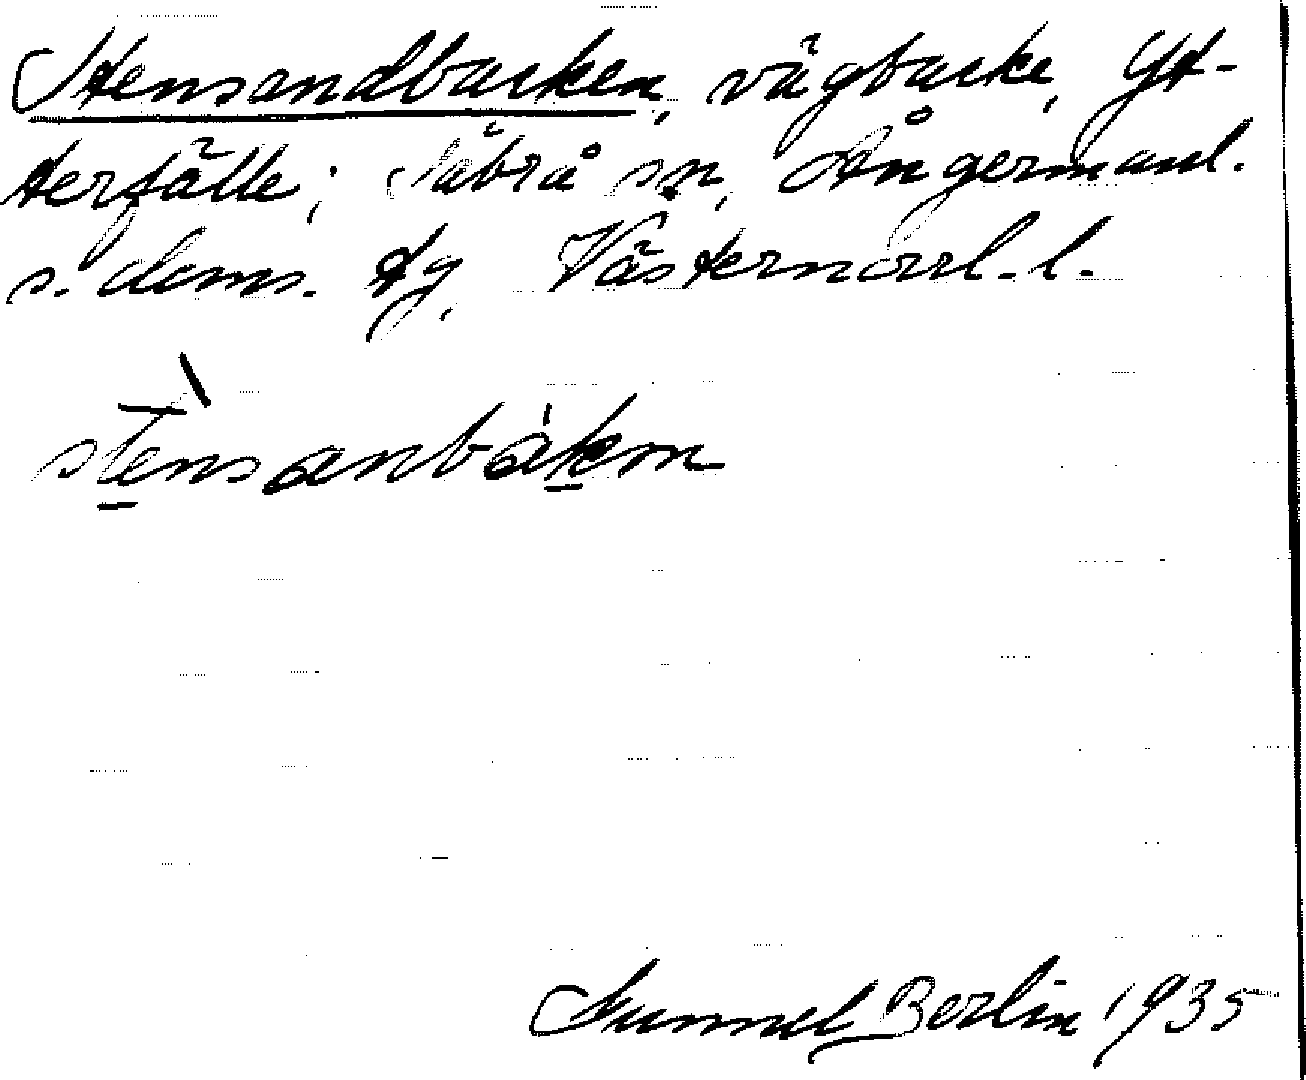 Stensandbacken, vägbacke, Yt-
terfälle; Säbrå sn, Ångermanl.
s. doms. tg, Västernorrl. l.
stènsanbákɐn
Gunnel Berlin 1935